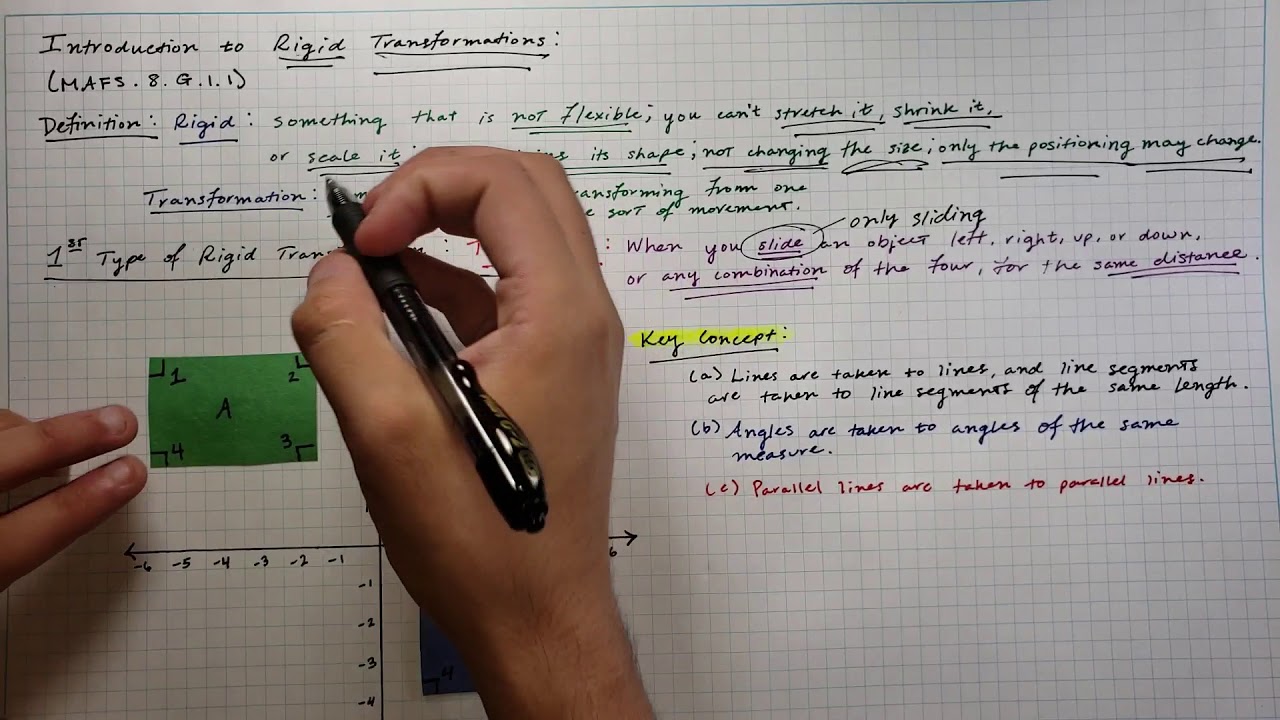 Introduction to Rigid Transformations:
(MAFS.8.G.1.1)
Definition: Rigid: something that is not flexible; you can't stretch it, shrink it,
or scale it; its shape; not changing the size; only the positioning may change.
Transformation: transforming from one
sort of movement.
only sliding
1st Type of Rigid : When you slide an object left, right, up, or down,
or any combination of the four, for the same distance.
Key Concept:
(a) Lines are taken to lines, and line segments
are taken to line segments of the same length.
(b) Angles are taken to angles of the same
measure.
(c) Parallel lines are taken to parallel lines.
1 2
A
4 3
-6 -5 -4 -3 -2 -1 6
-1
-2
-3
4
-4